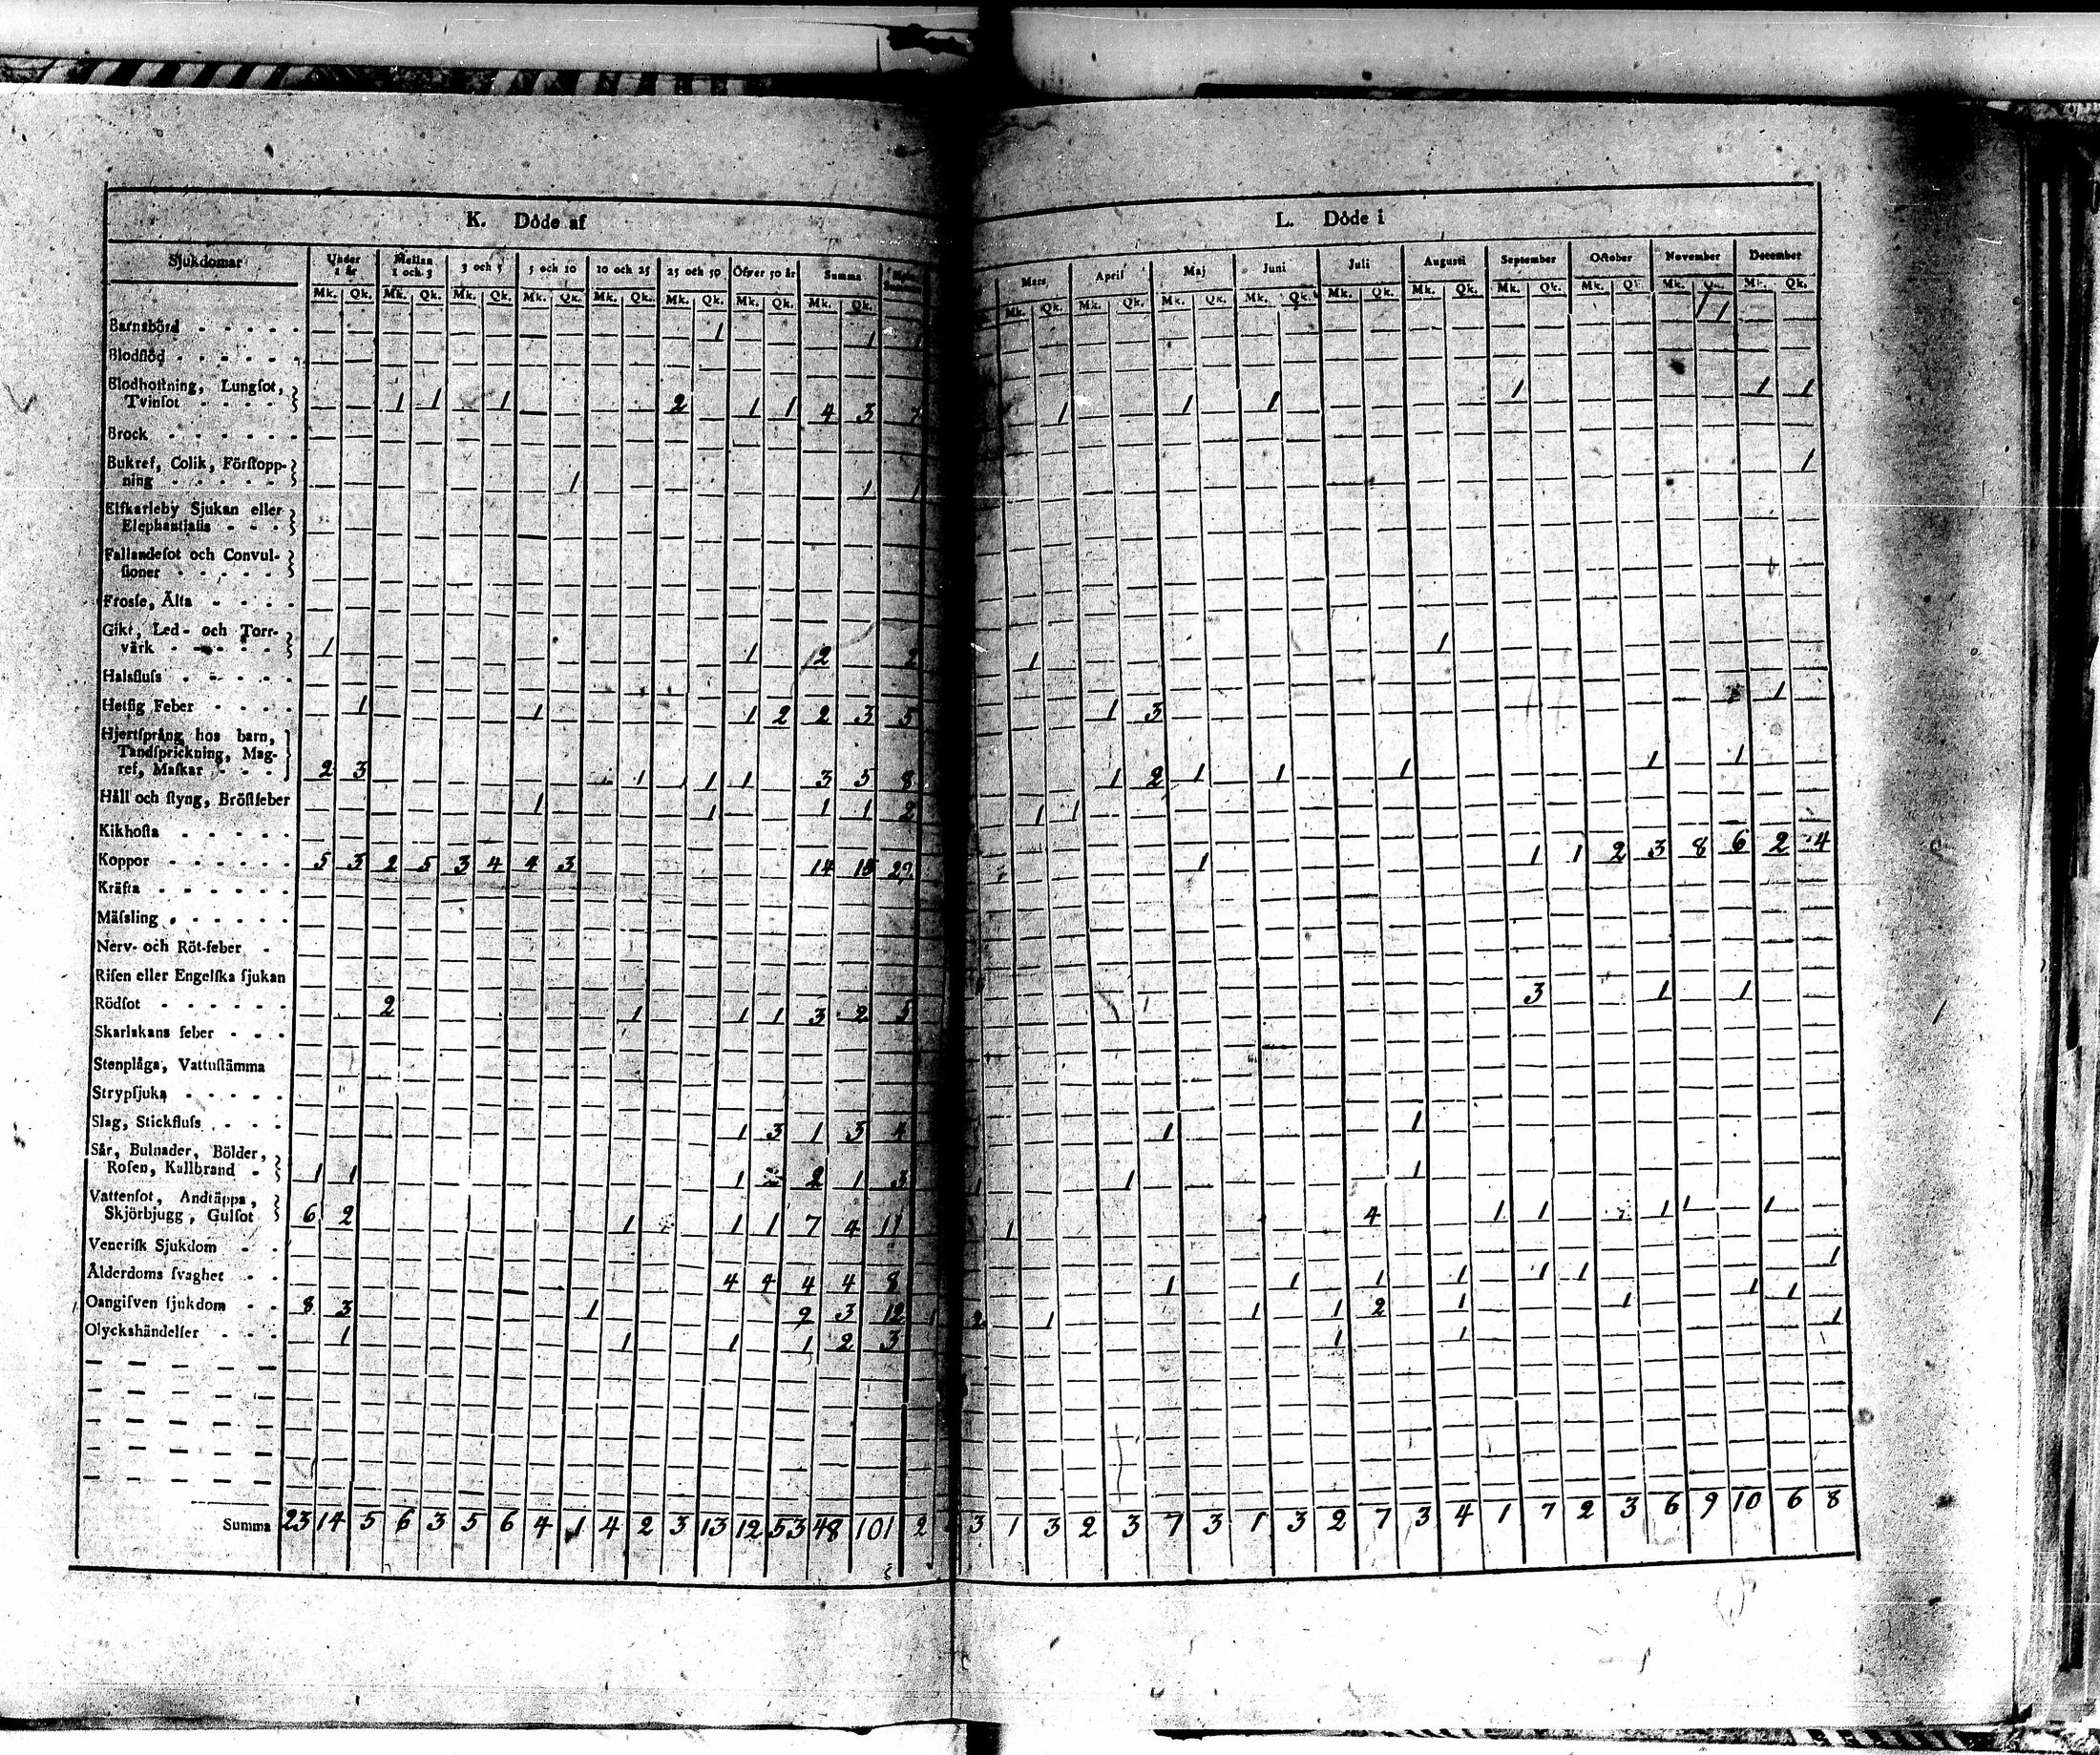 K. Döde af
L. Döde i
Sjukdomar
Under 1 år
Mellan 1 och 3
3 och 5
5 och 10
10 och 25
25 och 50
Öfver 50 år
Summa
Mars
April
Maj
Juni
Juli
Augusti
September
October
November
December
Mk. Qk. Mk. Qk. Mk. Qk. Mk. Qk. Mk. Qk. Mk. Qk. Mk. Qk. Mk. Qk.
Mk. Qk. Mk. Qk. Mk. Qk. Mk. Qk. Mk. Qk. Mk. Qk. Mk. Qk. Mk. Qk. Mk. Qk. Mk. Qk.
Barnsbörd 1 1 1
Blodflöd
Blodhoſtning, Lungſot,
Tvinſot 1 1 1 2 1 1 4 3 7 1 1 1 1 1 1
Brock
Bukref, Colik, Förſtopp-
ning 1 1 1 1
Elfkarleby Sjukan eller
Elephantiaſis
Fallandeſot och Convul-
ſioner
Frosſe, Älta
Gikt, Led- och Torr-
värk 1 1 2 2 1 1
Halsfluſs
Hetſig Feber 1 1 1 2 2 3 5 1 3 1
Hjertſprång hos barn,
Tandſprickning, Mag-
ref, Maſkar 2 3 1 1 1 1 3 5 8 1 2 1 1 1 1 1
Håll och ſtyng, Bröſtfeber 1 1 1 1 2 1 1
Kikhoſta
Koppor 5 3 2 5 3 4 4 3 14 15 29 1 1 1 2 3 8 6 2 4
Kräfta
Mäſsling
Nerv- och Röt-feber
Riſen eller Engelſka ſjukan
Rödſot 2 1 1 1 3 2 5 3 1 1
Skarlakans feber
Stenplåga, Vattuſtämma
Strypſjuka
Slag, Stickfluſs 1 3 1 3 4 1 1
Sår, Bulnader, Bölder,
Roſen, Kallbrand 1 1 1 2 1 3 1 1 1
Vattenſot, Andtäppa,
Skjörbjugg, Gulſot 6 2 1 1 1 7 4 11 1 4 1 1 1 1 1
Veneriſk Sjukdom
Ålderdoms ſvaghet 4 4 4 4 8 1 1 1 1 1 1 1
Oangifven ſjukdom 8 3 1 9 3 12 1 2 1 1 1 2 1 1 1 1
Olyckshändelſer 1 1 1 1 2 3 1 1 1
Summa 23 14 5 6 3 5 6 4 1 4 2 3 13 12 53 48 101 2 3 1 3 2 3 7 3 1 3 2 7 3 4 1 7 2 3 6 9 10 6 8